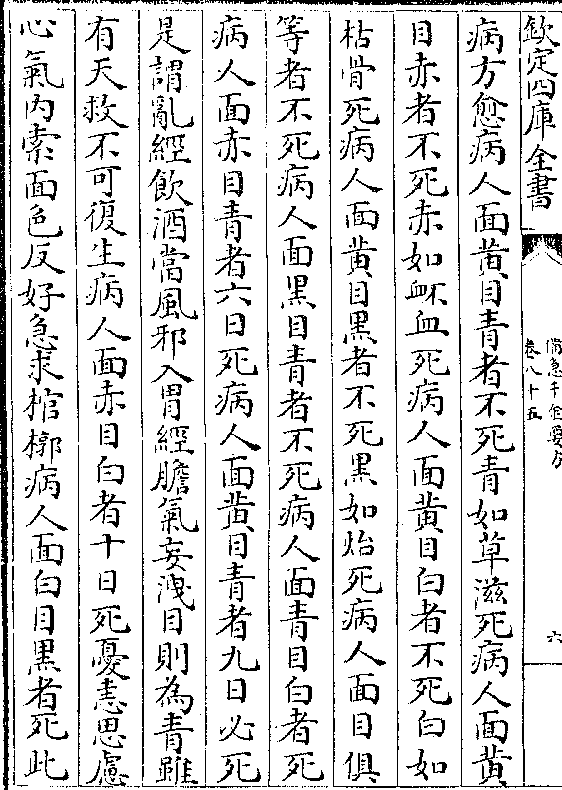 欽定四庫全書
備急千金要方
卷八十五
六
病方愈病人面黄目青者不死青如草滋死病人面黄
目赤者不死赤如衃血死病人面黄目白者不死白如
枯骨死病人面黄目黑者不死黑如炲死病人面目俱
等者不死病人面黑目青者不死病人面青目白者死
病人面赤目青者六日死病人面黄目青者九日必死
是謂亂經飲酒當風邪入胃經膽氣妄洩目則為青雖
有天救不可復生病人面赤目白者十日死憂恚思慮
心氣内索面色反好急求棺槨病人面白目黑者死此